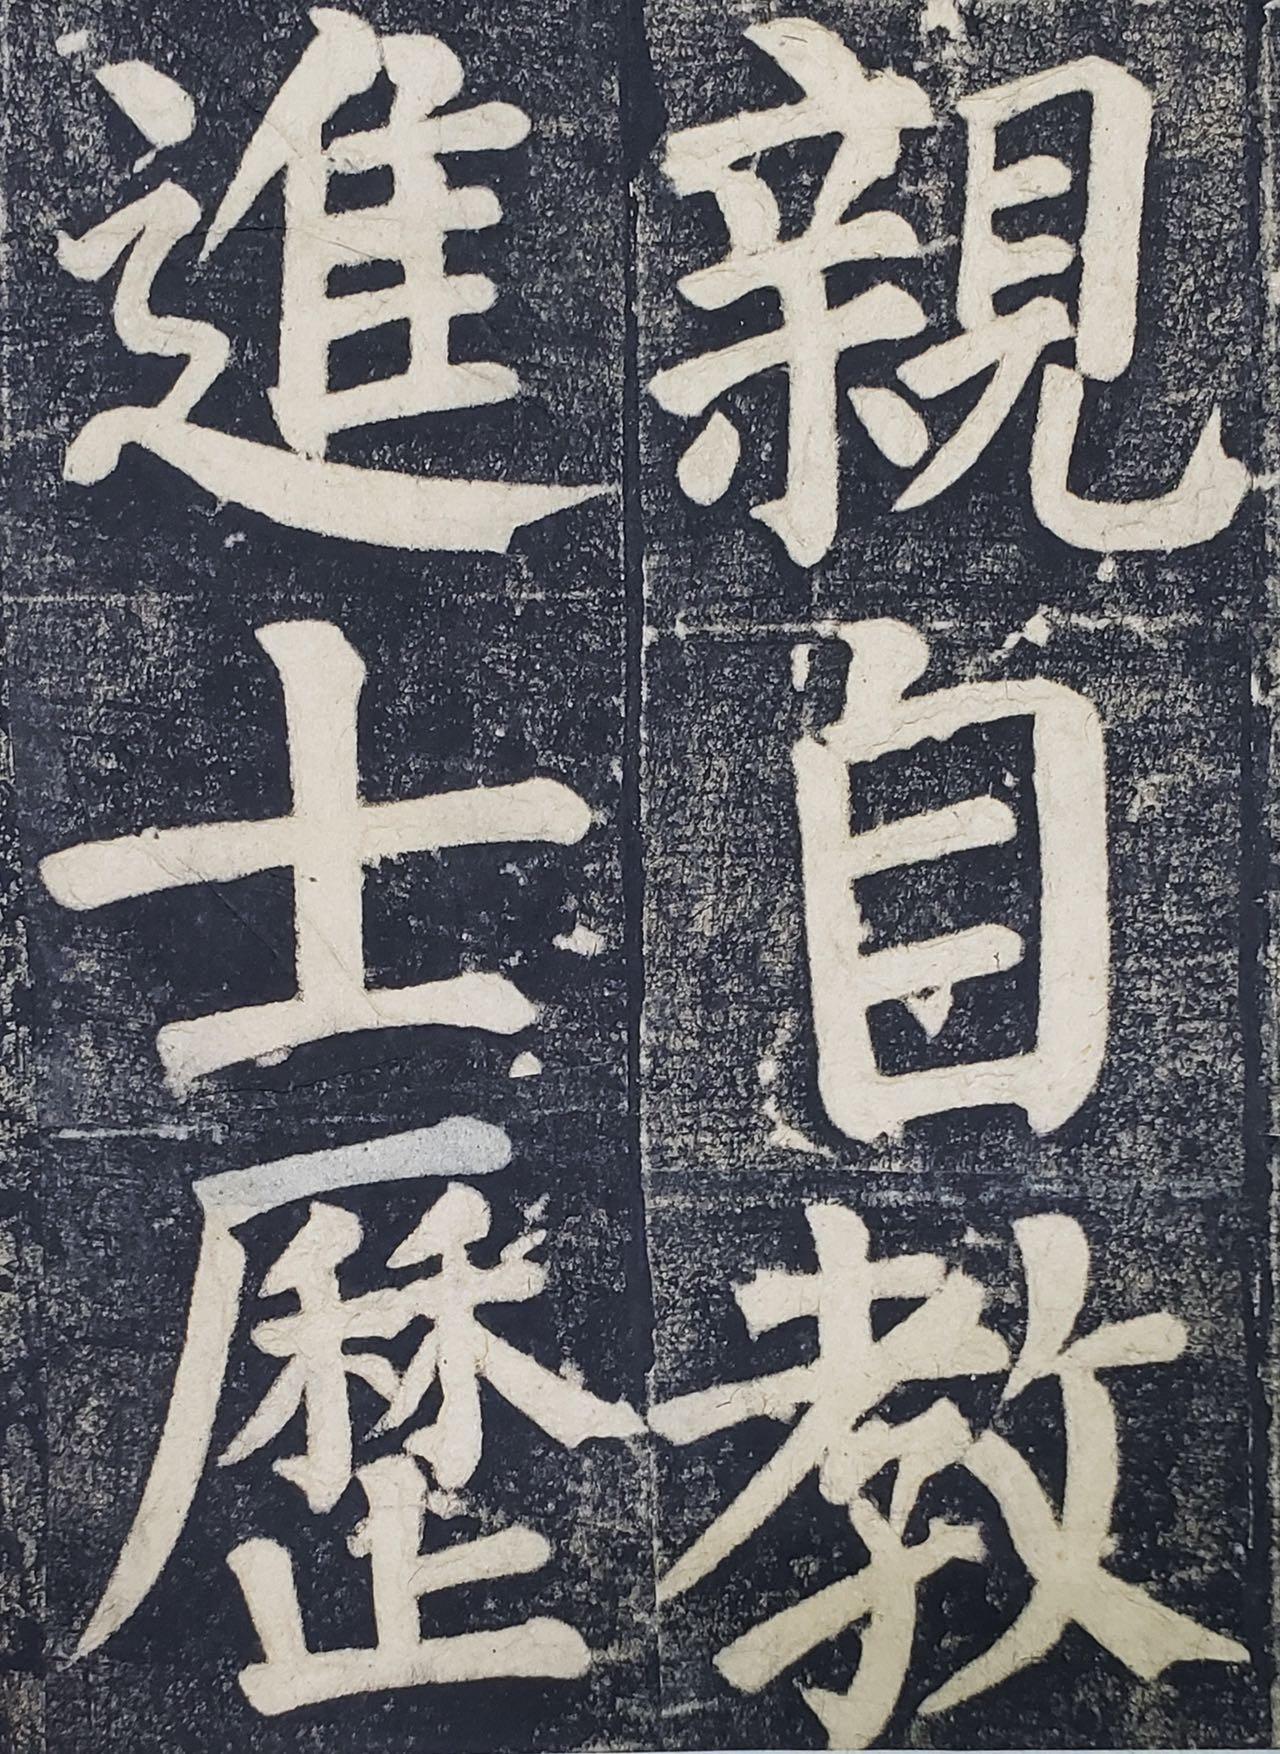 親自教
進士歷